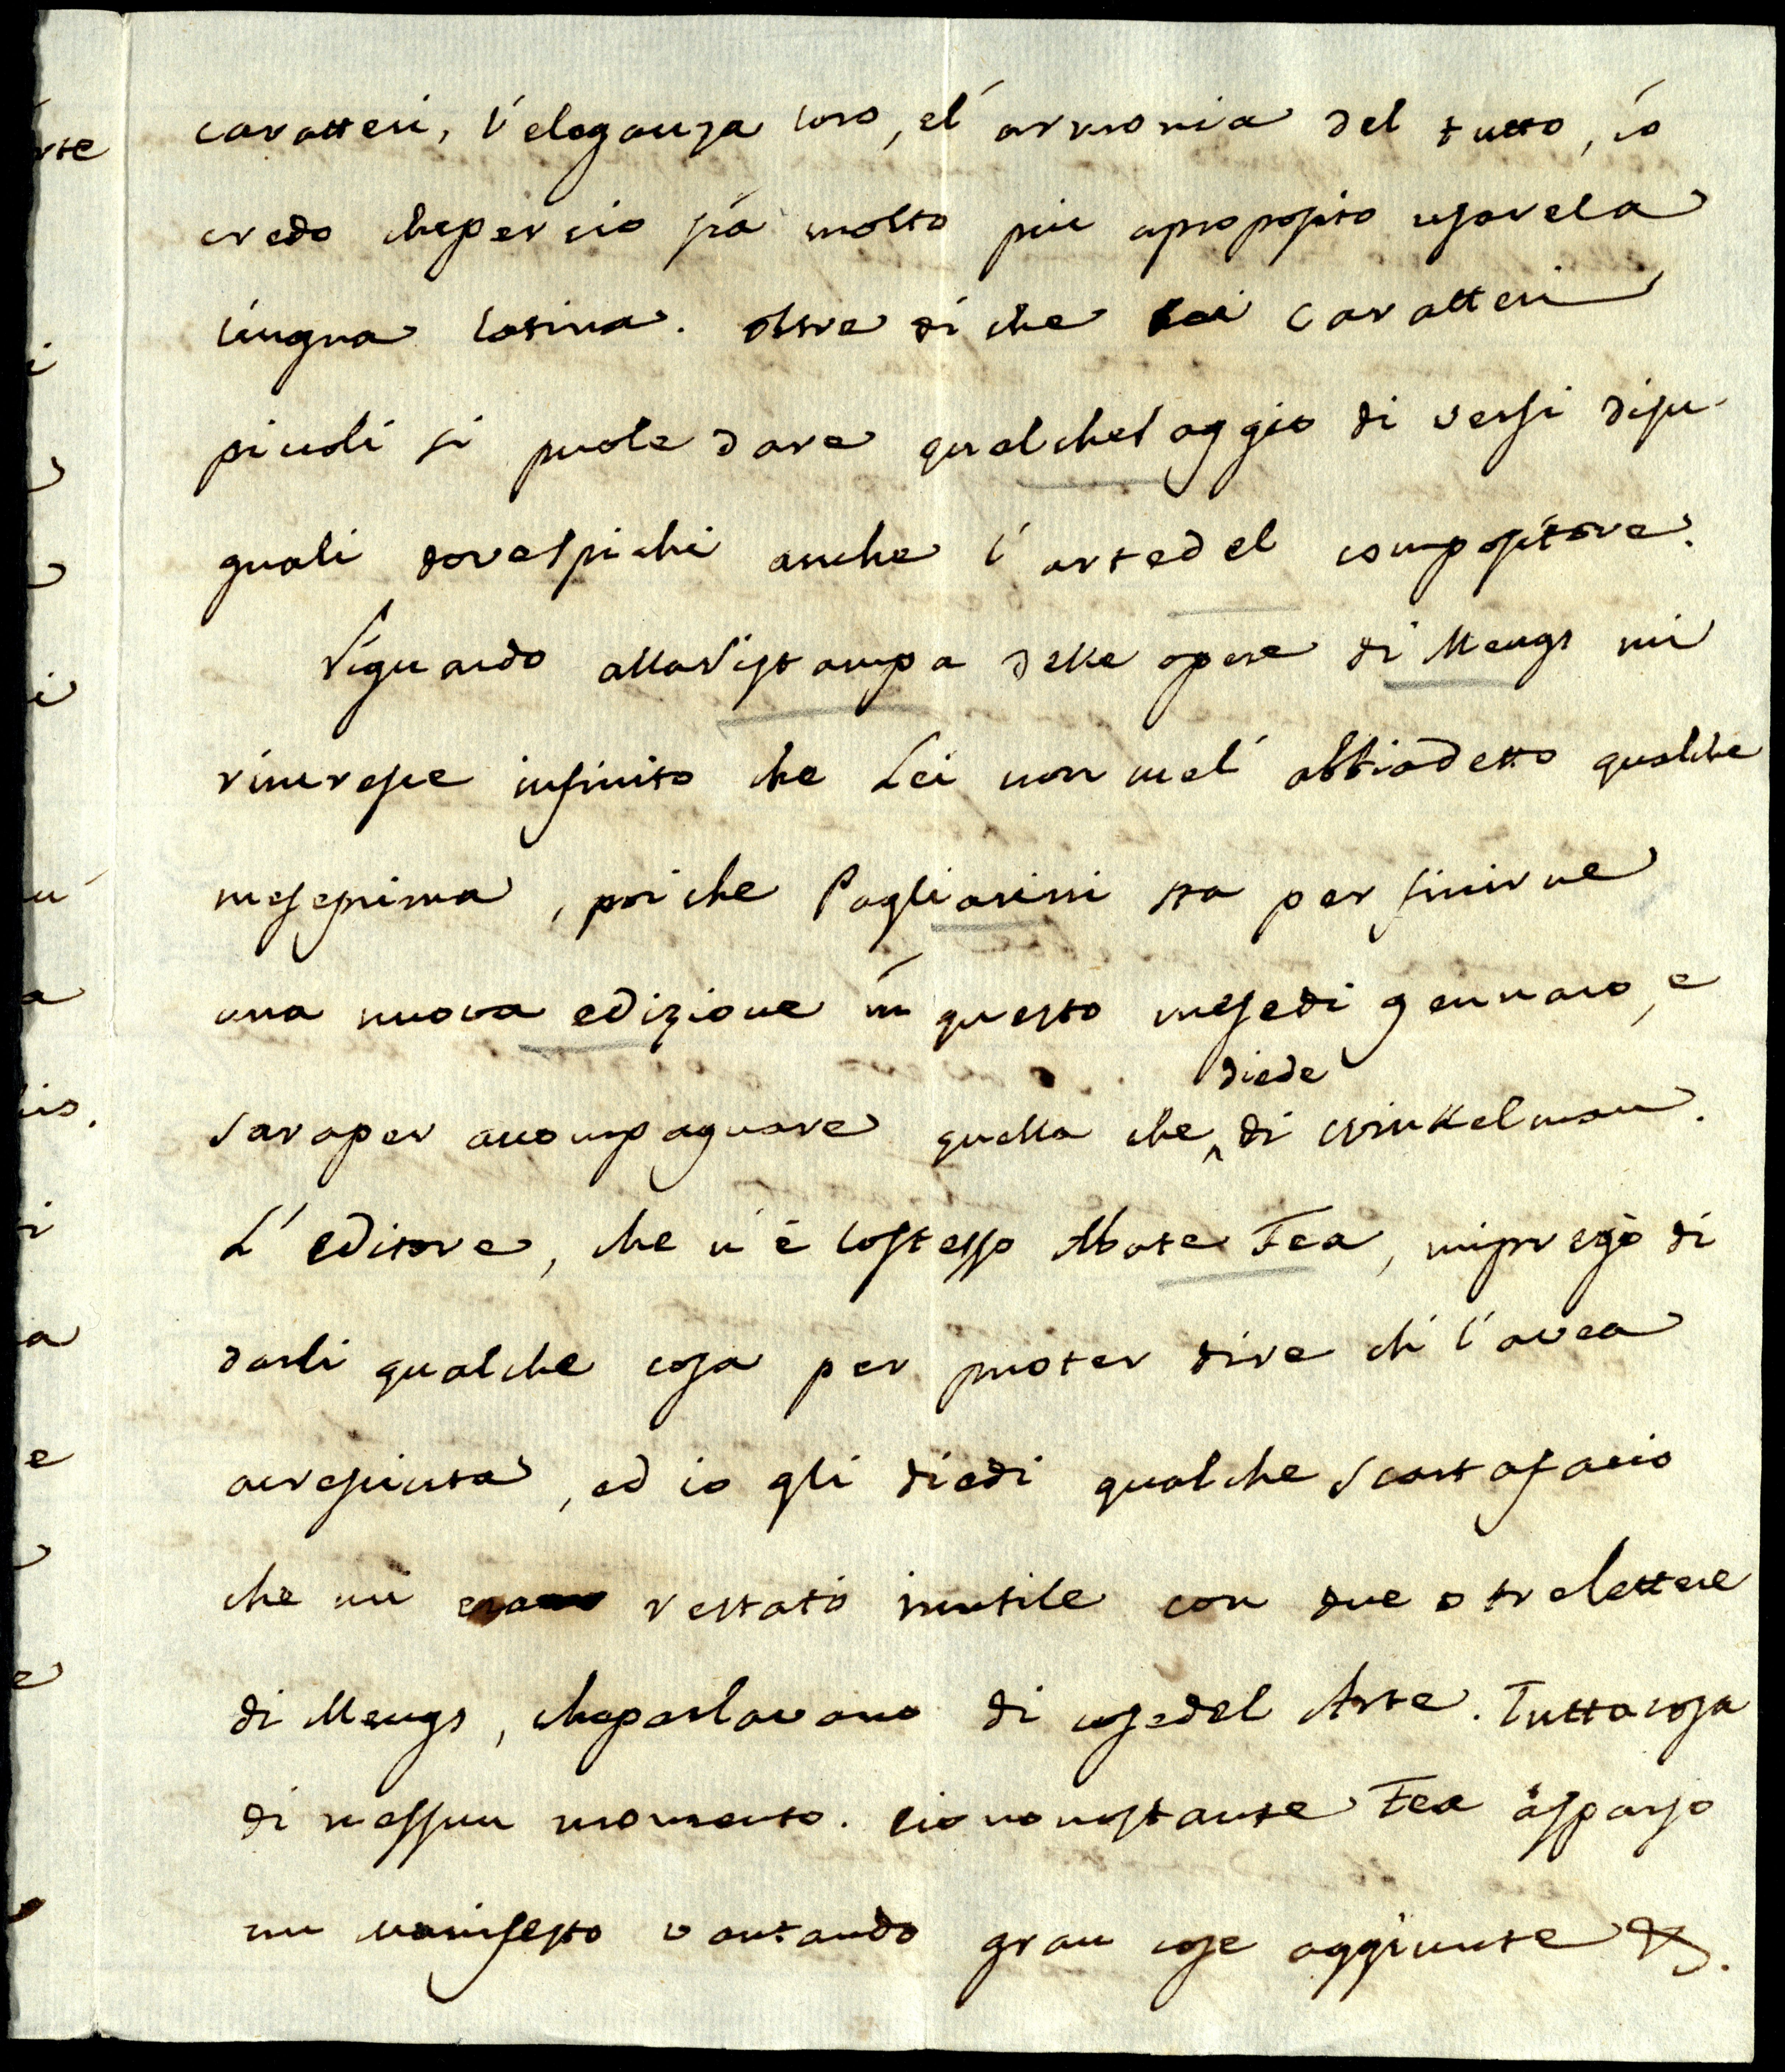 caratteri, l'eleganza loro, el' armonia del tutto, io
credo cheperciò sia molto piu aproposito usarela
lingua latina. Oltre di che coi caratteri
piccoli si puole dare qualchesaggio di versi disu-
guali dovespichi anche l'artedel compositore.
Riguardo allaristampa delle opere di Mengs mi
rincresce infinito che Lei non mel' abbiadetto qualche
meseprima, poiche Pagliarini sta per finirne
una nuova edizione in questo mesedi gennaro, e
saraper accompagnare quella che diede di Winkelman.
L'editore, che n'é lostesso Abate Fea, mipregò di
darli qualche cosa per puoter dire ch l'avea
acresciuta, ed io gli diedi qualche scartafacio
che mi era restato inutile con due o trelettere
di Mengs, cheparlavano di cosedel Arte. Tuttacosa
di nessun momento. Ciononostante Fea àsparso
un manifesto vantando gran cose aggiunte &.
rte